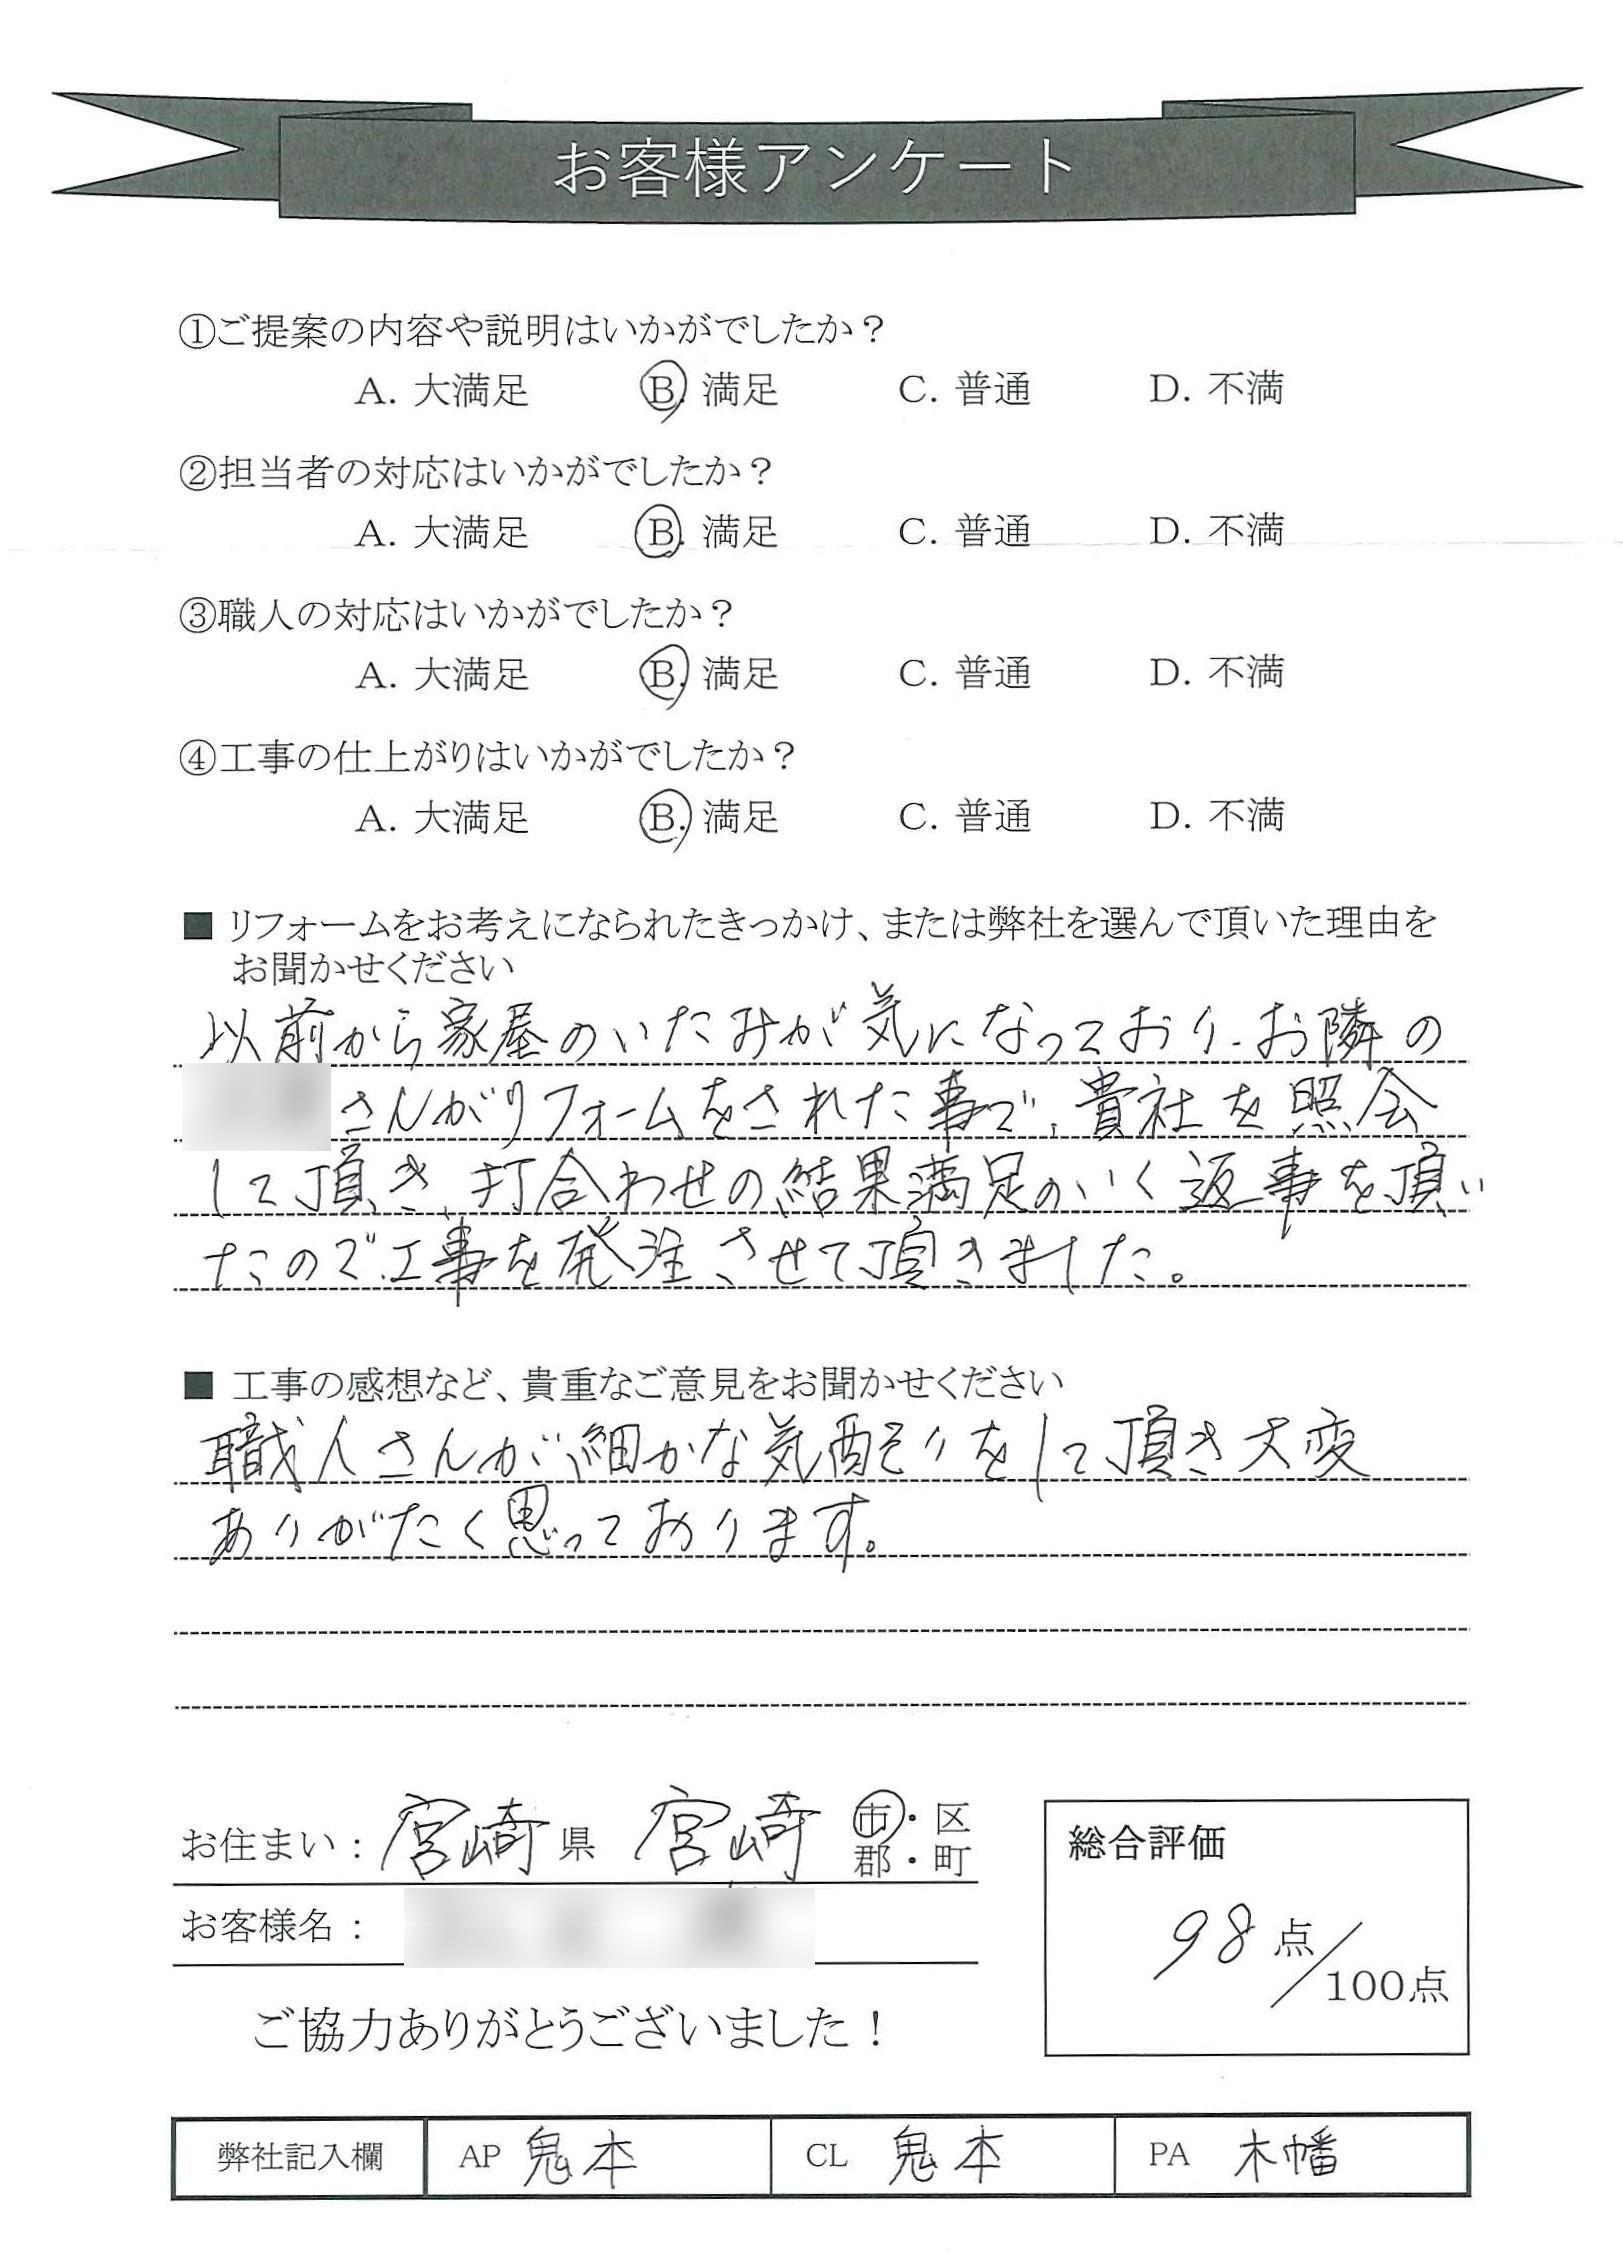 お客様アンケート
①ご提案の内容や説明はいかがでしたか？
A. 大満足 B. 満足 C. 普通 D. 不満
②担当者の対応はいかがでしたか？
A. 大満足 B. 満足 C. 普通 D. 不満
③職人の対応はいかがでしたか？
A. 大満足 B. 満足 C. 普通 D. 不満
④工事の仕上がりはいかがでしたか？
A. 大満足 B. 満足 C. 普通 D. 不満
■ リフォームをお考えになられたきっかけ、または弊社を選んで頂いた理由を
お聞かせください
以前から家屋のいたみが気になっており、お隣の
さんがリフォームをされた事で、貴社を照会
して頂き、打合わせの結果満足のいく返事を頂い
たので、工事を発注させて頂きました。
■ 工事の感想など、貴重なご意見をお聞かせください
職人さんが細かな気配りをして頂き大変
ありがたく思っております。
お住まい： 宮崎 県 宮崎 市・区
郡・町
お客様名：
総合評価
98 点／100点
ご協力ありがとうございました！
弊社記入欄 AP 鬼本 CL 鬼本 PA 木幡